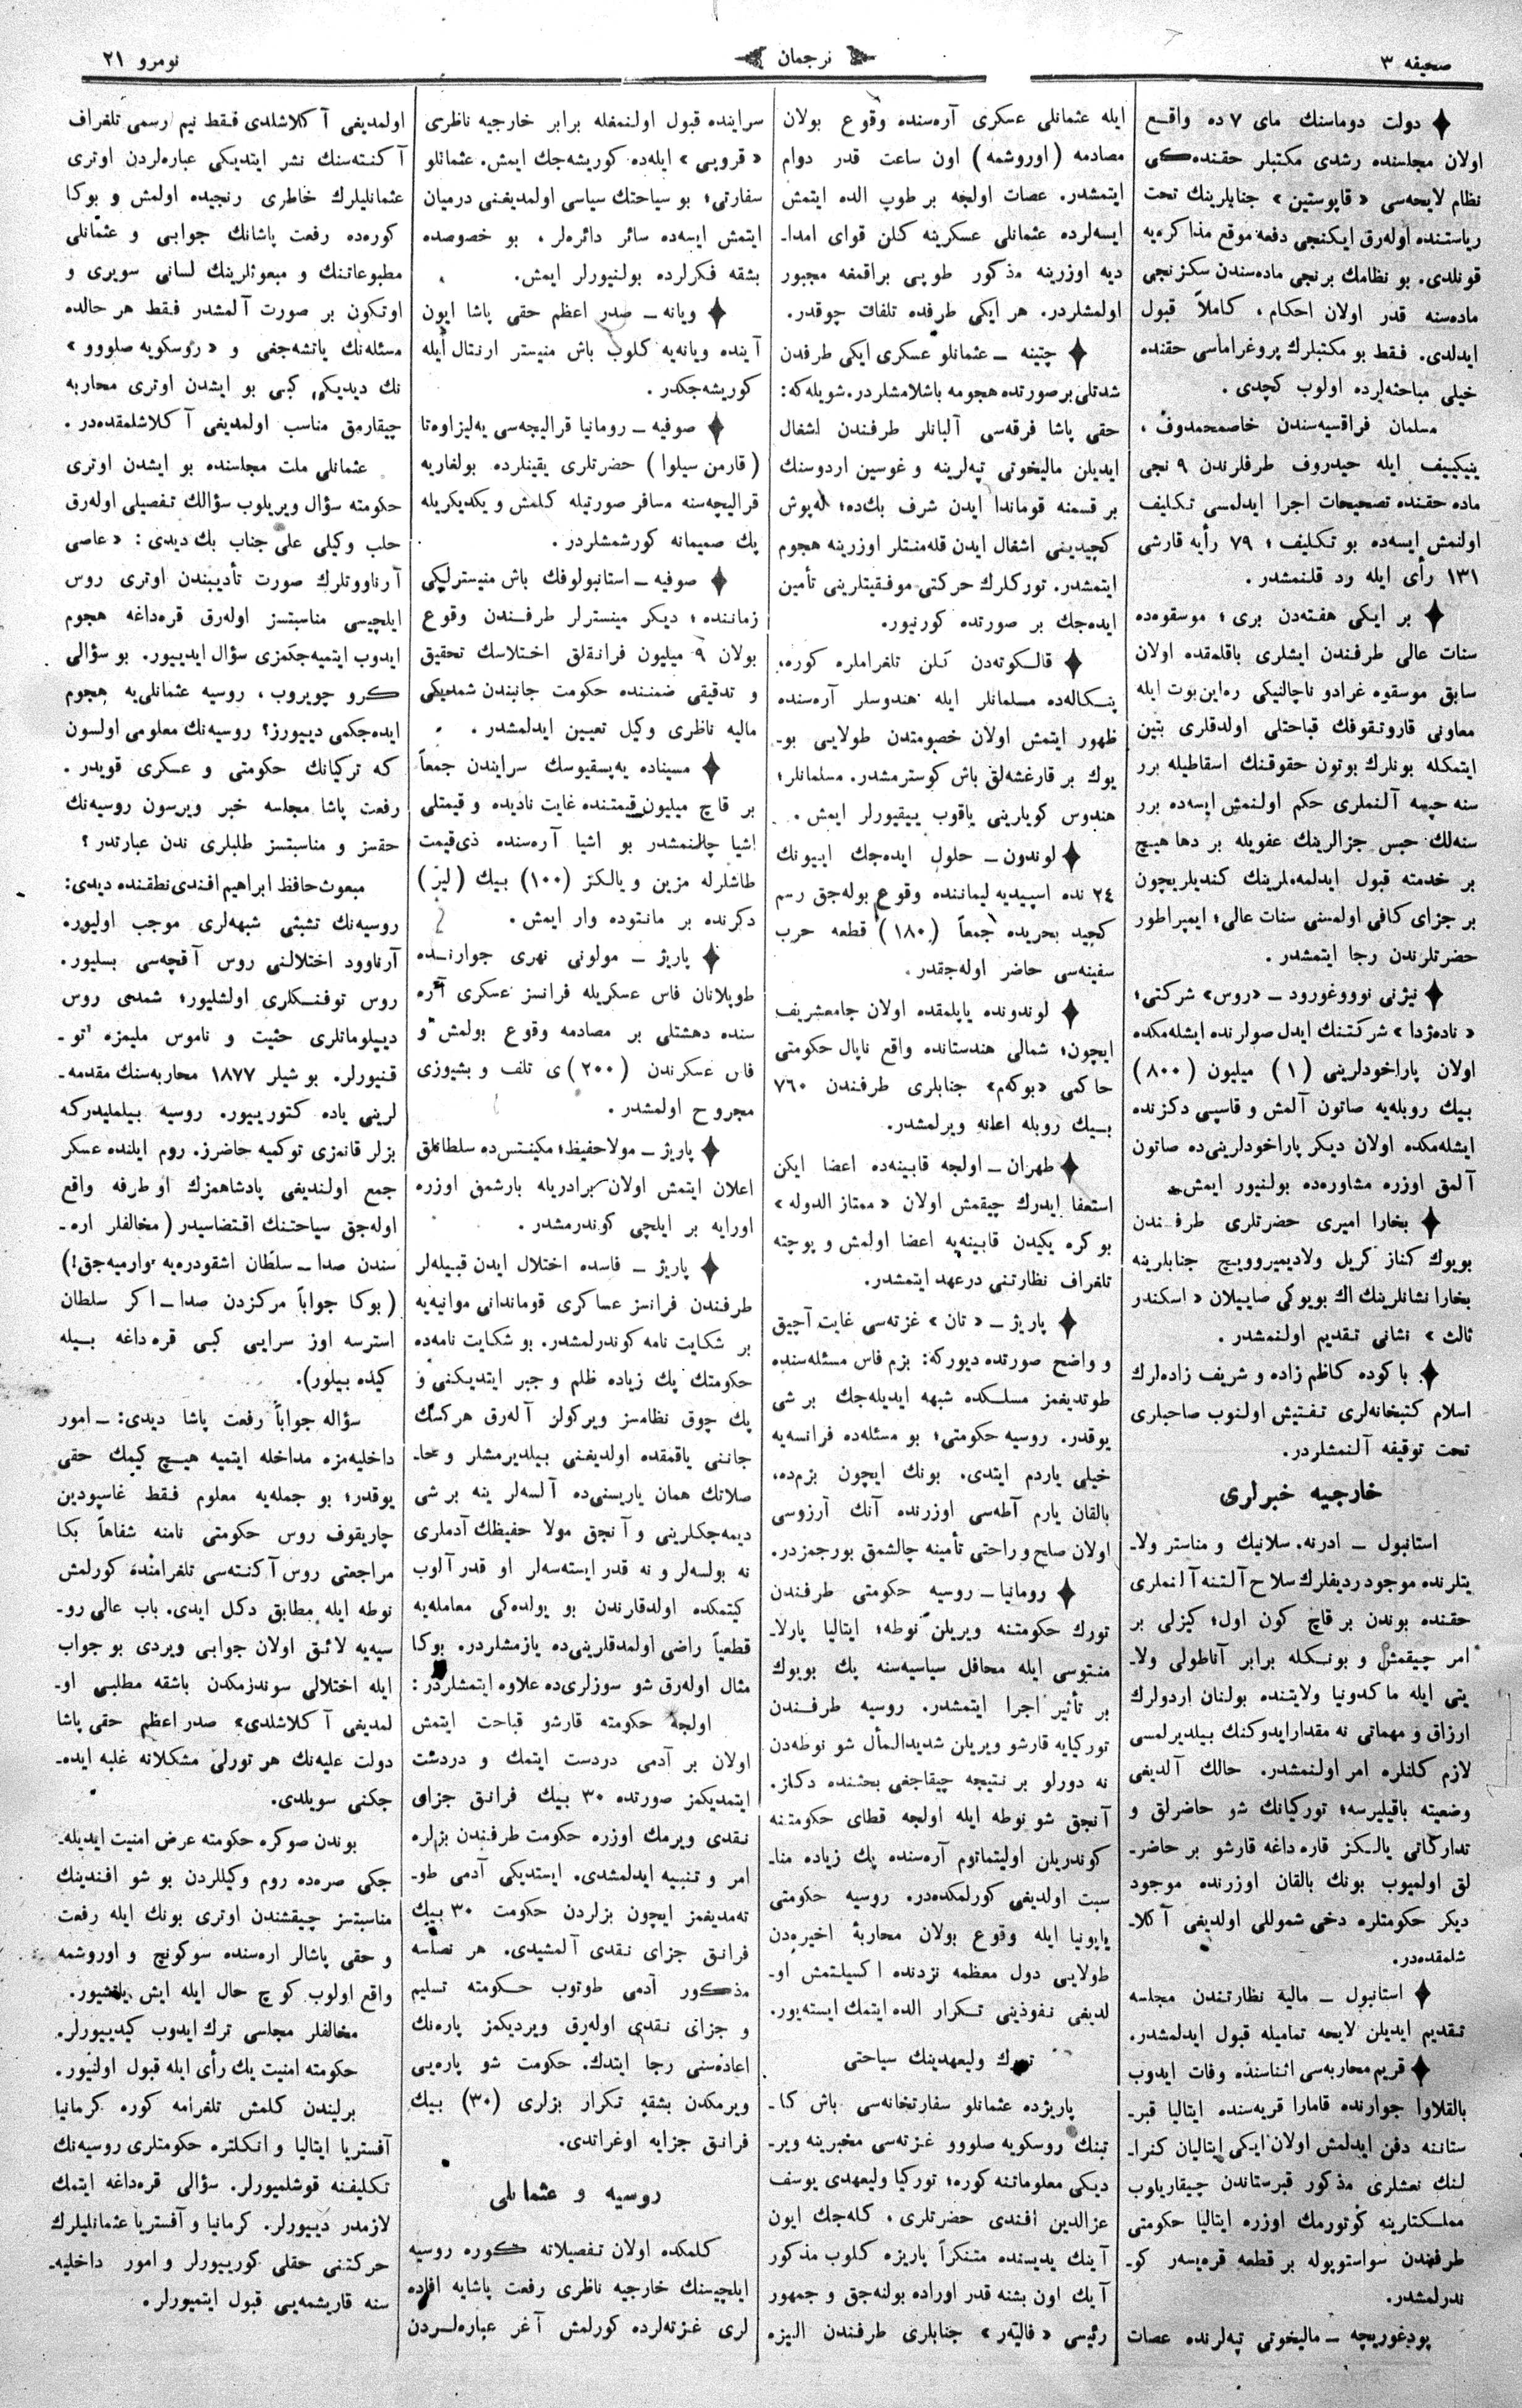 صحیفه ۳
ترجمان
نومرو ۲۱
دولت دوماسنك مای ۷ ده واقع
اولان مجلسنده رشدی مكتبلر حقنده‌كی
نظام لایحه‌سی « قاپوستین » جنابلرینك تحت
ریاستنده اوله‌رق ایكنجی دفعه موقع مذاكره‌یه
قونلدی. بو نظامك برنجی ماده‌سندن سكزنجی
ماده‌سنه قدر اولان احكام، كاملاً قبول
ایدلدی. فقط بو مكتبلرك پروغراماسی حقنده
خیلی مباحثه‌لرده اولوب كچدی.
مسلمان فراقسیه‌سندن خاصمحمدوف،
ینیكییف ایله حیدروف طرفلرندن ۹ نجی
ماده حقنده تصحیحات اجرا ایدلمسی تكلیف
اولنمش ایسه‌ده بو تكلیف؛ ۷۹ رأیه قارشی
۱۳۱ رأی ایله رد قلنمشدر.
بر ایكی هفته‌دن بری؛ موسقوه‌ده
سنات عالی طرفندن ایشلری باقلمقده اولان
سابق موسقوه غرادو ناچالنیكی ره‌این‌بوت ایله
معاونی قاروتقوفك قباحتلی اولدقلری بتین
ایتمكله بونلرك بوتون حقوقنك اسقاطیله برر
سنه حپسه آلنملری حكم اولنمش ایسه‌ده برر
سنه‌لك حبس جزالرینك عفویله بر دها هیچ
بر خدمته قبول ایدلمه‌ملرینك كندیلریچون
بر جزای كافی اولمسنی سنات عالی؛ ایمپراطور
حضرتلرندن رجا ایتمشدر.
نیژنی نوووغورود ــ «روس» شركتی؛
« ناده‌ژدا » شركتنك ایدل صولرنده ایشله‌مكده
اولان پاراخودلرینی (۱) میلیون (۸۰۰)
بیك روبله‌یه صاتون آلمش و قاسپی دكزنده
ایشله‌مكده اولان دیكر پاراخودلرینی‌ده صاتون
آلمق اوزره مشاوره‌ده بولنیور ایمش.
بخارا امیری حضرتلری طرفندن
بویوك كناز كریل ولادیمیروویچ جنابلرینه
بخارا نشانلرینك اك بویوكی صاییلان « اسكندر
ثالث » نشانی تقدیم اولنمشدر.
باكوده كاظم زاده و شریف زاده‌لرك
اسلام كتبخانه‌لری تفتیش اولنوب صاحبلری
تحت توقیفه آلنمشلردر.
خارجیه خبرلری
استانبول ــ ادرنه. سلانیك و مناستر ولا-
یتلرنده موجود ردیفلرك سلاح آلتنه آلنملری
حقنده بوندن بر قاچ كون اول؛ كیزلی بر
امر چیقمش و بونكله برابر آناطولی ولا-
یتی ایله ماكدونیا ولایتنده بولنان اردولرك
ارزاق و مهماتی نه مقدارایدوكنك بیلدیرلمسی
لازم كلنلره امر اولنمشدر. حالك آلدیغی
وضعیته باقیلیرسه؛ توركیانك شو حاضرلق و
تداركاتی یالكز قاره داغه قارشو بر حاضر-
لق اولمیوب بونك بالقان اوزرنده موجود
دیكر حكومتلره دخی شموللی اولدیغی آكلا-
شلمقده‌در.
استانبول ــ مالیه نظارتندن مجلسه
تقدیم ایدیلن لایحه تمامیله قبول ایدلمشدر.
قریم محاربه‌سی اثناسنده وفات ایدوب
بالقلاوا جوارنده قامارا قریه‌سنده ایتالیا قبر-
ستاننه دفن ایدلمش اولان ایكی ایتالیان كنرا-
لنك نعشلری مذكور قبرستاندن چیقاریلوب
مملكتلرینه كوتورمك اوزره ایتالیا حكومتی
طرفندن سواستوپوله بر قطعه قره‌یسه‌ر كو-
ندرلمشدر.
پودغوریچه ــ مالیخوتی تپه‌لرنده عصات
ایله عثمانلی عسكری آره‌سنده وقوع بولان
مصادمه (اوروشمه) اون ساعت قدر دوام
ایتمشدر. عصات اولجه بر طوپ الده ایتمش
ایسه‌لرده عثمانلی عسكرینه كلن قوای امدا-
دیه اوزرینه مذكور طوپی براقمغه مجبور
اولمشلردر. هر ایكی طرفده تلفات چوقدر.
چتینه ــ عثمانلو عسكری ایكی طرفدن
شدتلی بر صورتده هجومه باشلامشلردر. شویله‌كه:
حقی پاشا فرقه‌سی آلبانلر طرفندن اشغال
ایدیلن مالیخوتی تپه‌لرینه و غوسین اردوسنك
بر قسمنه قوماندا ایدن شرف بك‌ده؛ له‌پوش
كچیدینی اشغال ایدن قله‌منتلر اوزرینه هجوم
ایتمشدر. توركلرك حركتی موفقیتلرینی تأمین
ایده‌جك بر صورتده كورنیور.
قالكوته‌دن كلن تلغرافلره كوره،
بنكاله‌ده مسلمانلر ایله هندوسلر آره‌سنده
ظهور ایتمش اولان خصومتدن طولایی بو-
یوك بر قارغشه‌لق باش كوسترمشدر. مسلمانلر؛
هندوس كویارینی یاقوب ییقیورلر ایمش.
لوندون ــ حلول ایده‌جك اییونك
۲۴ نده اسپیدیه لیماننده وقوع بوله‌جق رسم
كچید بحریده جمعاً (۱۸۰) قطعه حرب
سفینه‌سی حاضر اوله‌جقدر.
لوندونده یاپلمقده اولان جامعشریف
ایچون؛ شمالی هندستانده واقع ناپال حكومتی
حاكمی «بوكه‌م» جنابلری طرفندن ۷۶۰
بیك روبله اعانه ویرلمشدر.
طهران ــ اولجه قابینه‌ده اعضا ایكن
استعفا ایدرك چیقمش اولان « ممتاز الدوله »
بو كره یكیدن قابینه‌یه اعضا اولمش و پوچته
تلغراف نظارتنی درعهد ایتمشدر.
پاریژ ــ « تان » غزته‌سی غایت آچیق
و واضح صورتده دیوركه: بزم فاس مسئله‌سنده
طوتدیغمز مسلكده شبهه ایدیله‌جك بر شی
یوقدر. روسیه حكومتی؛ بو مسئله‌ده فرانسه‌یه
خیلی یاردم ایتدی. بونك ایچون بزم‌ده،
بالقان یارم آطه‌سی اوزرنده آنك آرزوسی
اولان صلح و راحتی تأمینه چالشمق بورجمزدر.
رومانیا ــ روسیه حكومتی طرفندن
تورك حكومتنه ویریلن نوطه؛ ایتالیا پارلا-
منتوسی ایله محافل سیاسیه‌سنه پك بویوك
بر تأثیر اجرا ایتمشدر. روسیه طرفندن
توركیایه قارشو ویریلن شدیدالمأل شو نوطه‌دن
نه دورلو بر نتیجه چیقاجغی بحثنده دكلز.
آنجق شو نوطه ایله اولجه قطای حكومتنه
كوندریلن اولیتماتوم آره‌سنده پك زیاده منا-
سبت اولدیغی كورلمكده‌در. روسیه حكومتی
یاپونیا ایله وقوع بولان محاربهٔ اخیره‌دن
طولایی دول معظمه نزدنده اكسیلتمش او-
لدیغی نفوذینی تكرار الده ایتمك ایسته‌یور.
تورك ولیعهدینك سیاحتی
پاریژده عثمانلو سفارتخانه‌سی باش كا-
تبنك روسكویه صلووو غزته‌سی مخبرینه ویر-
دیكی معلوماتنه كوره؛ توركیا ولیعهدی یوسف
عزالدین افندی حضرتلری، كله‌جك ایون
آینك یدیسنده متنكراً پاریزه كلوب مذكور
آیك اون بشنه قدر اوراده بولنه‌جق و جمهور
رئیسی « فالیه‌ر » جنابلری طرفندن الیزه
سراینده قبول اولنمغله برابر خارجیه ناظری
« قروپی » ایله‌ده كوریشه‌جك ایمش. عثمانلو
سفارتی؛ بو سیاحتك سیاسی اولمدیغنی درمیان
ایتمش ایسه‌ده سائر دائره‌لر، بو خصوصده
بشقه فكرلرده بولنیورلر ایمش.
ویانه ــ صدر اعظم حقی پاشا ایون
آینده ویانه‌یه كلوب باش منیستر ارنتال ایله
كوریشه‌جكدر.
صوفیه ــ رومانیا قرالیچه‌سی یه‌لیزاوه‌تا
(قارمن سیلوا) حضرتلری یقینلرده بولغاریه
قرالیچه‌سنه مسافر صورتیله كلمش و یكدیكریله
پك صمیمانه كورشمشلردر.
صوفیه ــ استانبولوفك باش منیسترلیكی
زماننده؛ دیكر مینسترلر طرفندن وقوع
بولان ۹ میلیون فرانقلق اختلاسك تحقیق
و تدقیقی ضمننده حكومت جانبندن شمدیكی
مالیه ناظری وكیل تعیین ایدلمشدر.
مسیناده یه‌پسقپوسك سرایندن جمعاً
بر قاچ میلیون قیمتنده غایت نادیده و قیمتلی
اشیا چالنمشدر بو اشیا آره‌سنده ذی‌قیمت
طاشلرله مزین و یالكز (۱۰۰) بیك (لیر)
دكرنده بر مانتوده وار ایمش.
پاریژ ــ مولونی نهری جوارنده
طوپلانان فاس عسكریله فرانسز عسكری آره
سنده دهشتلی بر مصادمه وقوع بولمش و
فاس عسكرندن (۲۰۰) ی تلف و بشیوزی
مجروح اولمشدر.
پاریژ ــ مولاحفیظ؛ مكینتس‌ده سلطانلق
اعلان ایتمش اولان برادریله بارشمق اوزره
اورایه بر ایلچی كوندرمشدر.
پاریژ ــ فاسده اختلال ایدن قبیله‌لر
طرفندن فرانسز عساكری قوماندانی موانیه‌یه
بر شكایت نامه كوندرلمشدر. بو شكایت نامه‌ده
حكومتك پك زیاده ظلم و جبر ایتدیكنی و
پك چوق نظامسز ویركولن آله‌رق هركسك
جاننی یاقمقده اولدیغنی بیلدیرمشلر و محا-
صلاتك همان یاریسنی‌ده آلسه‌لر ینه بر شی
دیمه‌جكلرینی و آنجق مولا حفیظك آدملری
نه بولسه‌لر و نه قدر ایسته‌سه‌لر او قدر آلوب
كیتمكده اولدقلرندن بو یولده‌كی معامله‌یه
قطعیاً راضی اولمدقلرینی‌ده یازمشلردر. بوكا
مثال اوله‌رق شو سوزلری‌ده علاوه ایتمشلردر:
اولجه حكومته قارشو قباحت ایتمش
اولان بر آدمی دردست ایتمك و دردست
ایتمدیكمز صورتده ۳۰ بیك فرانق جزای
نقدی ویرمك اوزره حكومت طرفندن بزلره
امر و تنبیه ایدلمشدی. ایستدیكی آدمی طو-
ته‌مدیغمز ایچون بزلردن حكومت ۳۰ بیك
فرانق جزای نقدی آلمشیدی. هر نصلسه
مذكور آدمی طوتوب حكومته تسلیم
و جزای نقدی اوله‌رق ویردیكمز پاره‌نك
اعاده‌سنی رجا ایتدك. حكومت شو پاره‌یی
ویرمكدن بشقه تكرار بزلری (۳۰) بیك
فرانق جزایه اوغراتدی.
روسیه و عثمانلی
كلمكده اولان تفصیلاته كوره روسیه
ایلچیسنك خارجیه ناظری رفعت پاشایه افاده
لری غزته‌لرده كورلمش آغر عباره‌لردن
اولمدیغی آكلاشلدی فقط نیم رسمی تلغراف
آكنته‌سنك نشر ایتدیكی عباره‌لردن اوتری
عثمانلیلرك خاطری رنجیده اولمش و بوكا
كوره‌ده رفعت پاشانك جوابی و عثمانلی
مطبوعاتنك و مبعوثلرینك لسانی سویری و
اوتكون بر صورت آلمشدر فقط هر حالده
مسئله‌نك یاتشه‌جغی و « روسكویه صلووو »
نك دیدیكی كبی بو ایشدن اوتری محاربه
چیقارمق مناسب اولمدیغی آكلاشلمقده‌در.
عثمانلی ملت مجلسنده بو ایشدن اوتری
حكومته سؤال ویریلوب سؤالك تفصیلی اوله‌رق
حلب وكیلی علی جناب بك دیدی: « عاصی
آرناووتلرك صورت تأدیبندن اوتری روس
ایلچیسی مناسبتسز اوله‌رق قره‌داغه هجوم
ایدوب ایتمیه‌جكمزی سؤال ایدییور. بو سؤالی
كرو چویروب، روسیه عثمانلی‌یه هجوم
ایده‌جكمی دیبورز؟ روسیه‌نك معلومی اولسون
كه تركیانك حكومتی و عسكری قویدر.
رفعت پاشا مجلسه خبر ویرسون روسیه‌نك
حقسز و مناسبتسز طلبلری ندن عبارتدر؟
مبعوث حافظ ابراهیم افندی نطقنده دیدی:
روسیه‌نك تشبثی شبهه‌لری موجب اولیور.
آرناوود اختلالنی روس آقچه‌سی بسلیور.
روس توفنكلری اولشلیور؛ شمدی روس
دیپلوماتلری حثیت و ناموس ملیمزه تو-
قنیورلر. بو شیلر ۱۸۷۷ محاربه‌سنك مقدمه-
لرینی یاده كتورییور. روسیه بیلملیدركه
بزلر قانمزی توكمیه حاضرز. روم ایلنده عسكر
جمع اولندیغی پادشاهمزك او طرفه واقع
اوله‌جق سیاحتنك اقتضاسیدر (مخالفلر اره-
سندن صدا ــ سلطان اشقودره‌یه وارمیه‌جق!)
(بوكا جواباً مركزدن صدا ــ اكر سلطان
استرسه اوز سرایی كبی قره داغه بیله
كیده بیلور).
سؤاله جواباً رفعت پاشا دیدی: ــ امور
داخلیه‌مزه مداخله ایتمیه هیچ كیمك حقی
یوقدر؛ بو جمله‌یه معلوم فقط غاسپودین
چاریقوف روس حكومتی نامنه شفاهاً بكا
مراجعتی روس آكنته‌سی تلغرامنده كورلمش
نوطه ایله مطابق دكل ایدی. باب عالی رو-
سیه‌یه لائق اولان جوابی ویردی بو جواب
ایله اختلالی سوندزمكدن باشقه مطلبی او-
لمدیغی آكلاشلدی» صدر اعظم حقی پاشا
دولت علیه‌نك هر تورلی مشكلاته غلبه ایده-
جكنی سویلدی.
بوندن صوكره حكومته عرض امنیت ایدیله-
جكی صره‌ده روم وكیللردن بو شو افندینك
مناسبتسز چیقشندن اوتری بونك ایله رفعت
و حقی پاشالر اره‌سنده سوكونچ و اوروشمه
واقع اولوب كوچ حال ایله ایش یاتشیور.
مخالفلر مجلسی ترك ایدوب كیدییورلر.
حكومته امنیت یك رأی ایله قبول اولنیور.
برلیندن كلمش تلغرامه كوره كرمانیا
آفستریا ایتالیا و انكلتره حكومتلری روسیه‌نك
تكلیفنه قوشلمیورلر. سؤالی قره‌داغه ایتمك
لازمدر دیبورلر. كرمانیا و آفستریا عثمانلیلرك
حركتنی حقلی كورییورلر و امور داخلیه-
سنه قاریشمه‌یی قبول ایتمیورلر.